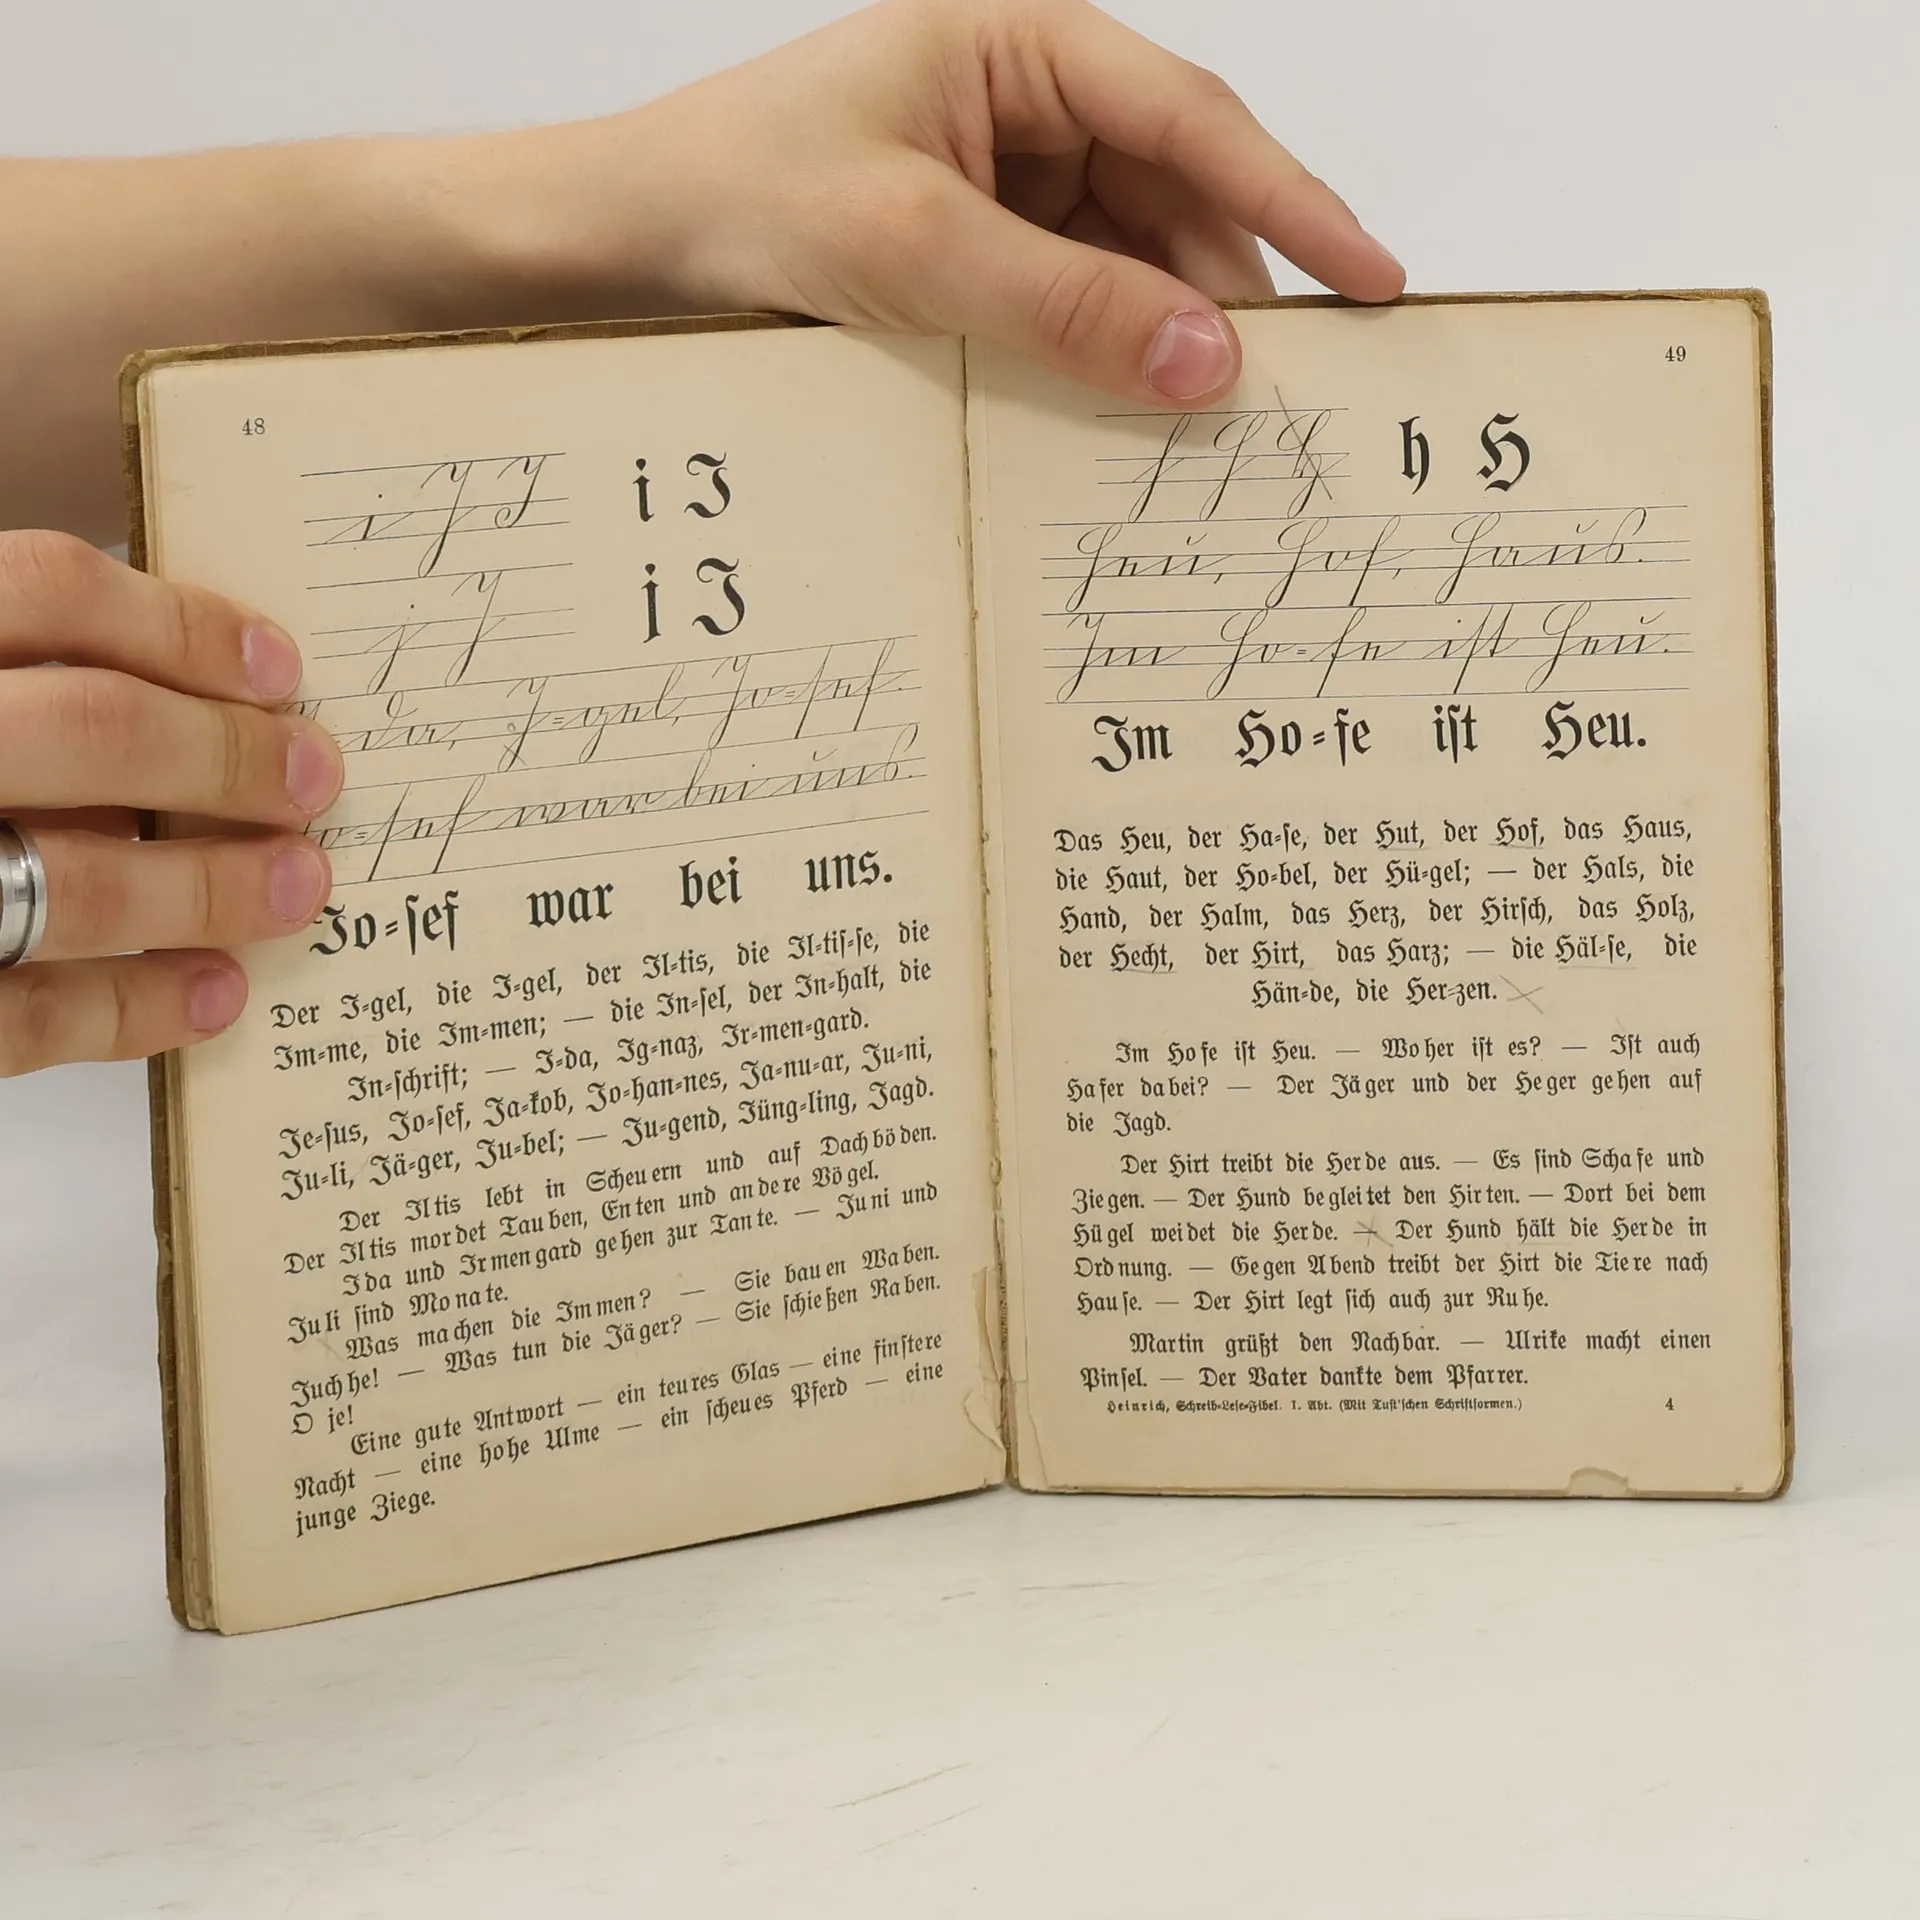 48
i J J i I
j J j J
der, I=gel, Jo=sef.
Jo=sef war bei uns.
Jo=ſef war bei uns.
Der I=gel, die I=gel, der Il=tis, die Il=tiſ=ſe, die
Im=me, die Im=men; — die In=ſel, der In=halt, die
In=ſchrift; — I=da, Ig=naz, Ir=men=gard.
Je=ſus, Jo=ſef, Ja=kob, Jo=han=nes, Ja=nu=ar, Ju=ni,
Ju=li, Jä=ger, Ju=bel; — Ju=gend, Jüng=ling, Jagd.
Der Iltis lebt in Scheuern und auf Dachböden.
Der Iltis mordet Tauben, Enten und andere Vögel.
Ida und Irmengard gehen zur Tante. — Juni und
Juli ſind Monate.
Was machen die Immen? — Sie bauen Waben.
Juchhe! — Was tun die Jäger? — Sie ſchießen Raben.
O je!
Eine gute Antwort — ein teures Glas — eine finſtere
Nacht — eine hohe Ulme — ein ſcheues Pferd — eine
junge Ziege.
49
h H H h H
Heu, Hof, Haus.
Im Ho=fe ist Heu.
Im Ho=fe iſt Heu.
Das Heu, der Ha=ſe, der Hut, der Hof, das Haus,
die Haut, der Ho=bel, der Hü=gel; — der Hals, die
Hand, der Halm, das Herz, der Hirſch, das Holz,
der Hecht, der Hirt, das Harz; — die Häl=ſe, die
Hän=de, die Her=zen.
Im Hofe iſt Heu. — Woher iſt es? — Iſt auch
Hafer dabei? — Der Jäger und der Heger gehen auf
die Jagd.
Der Hirt treibt die Herde aus. — Es ſind Schafe und
Ziegen. — Der Hund begleitet den Hirten. — Dort bei dem
Hügel weidet die Herde. — Der Hund hält die Herde in
Ordnung. — Gegen Abend treibt der Hirt die Tiere nach
Hauſe. — Der Hirt legt ſich auch zur Ruhe.
Martin grüßt den Nachbar. — Ulrike macht einen
Pinſel. — Der Vater dankte dem Pfarrer.
Heinrich, Schreib=Leſe=Fibel. I. Abt. (Mit Tuſt'ſchen Schriftformen.) 4